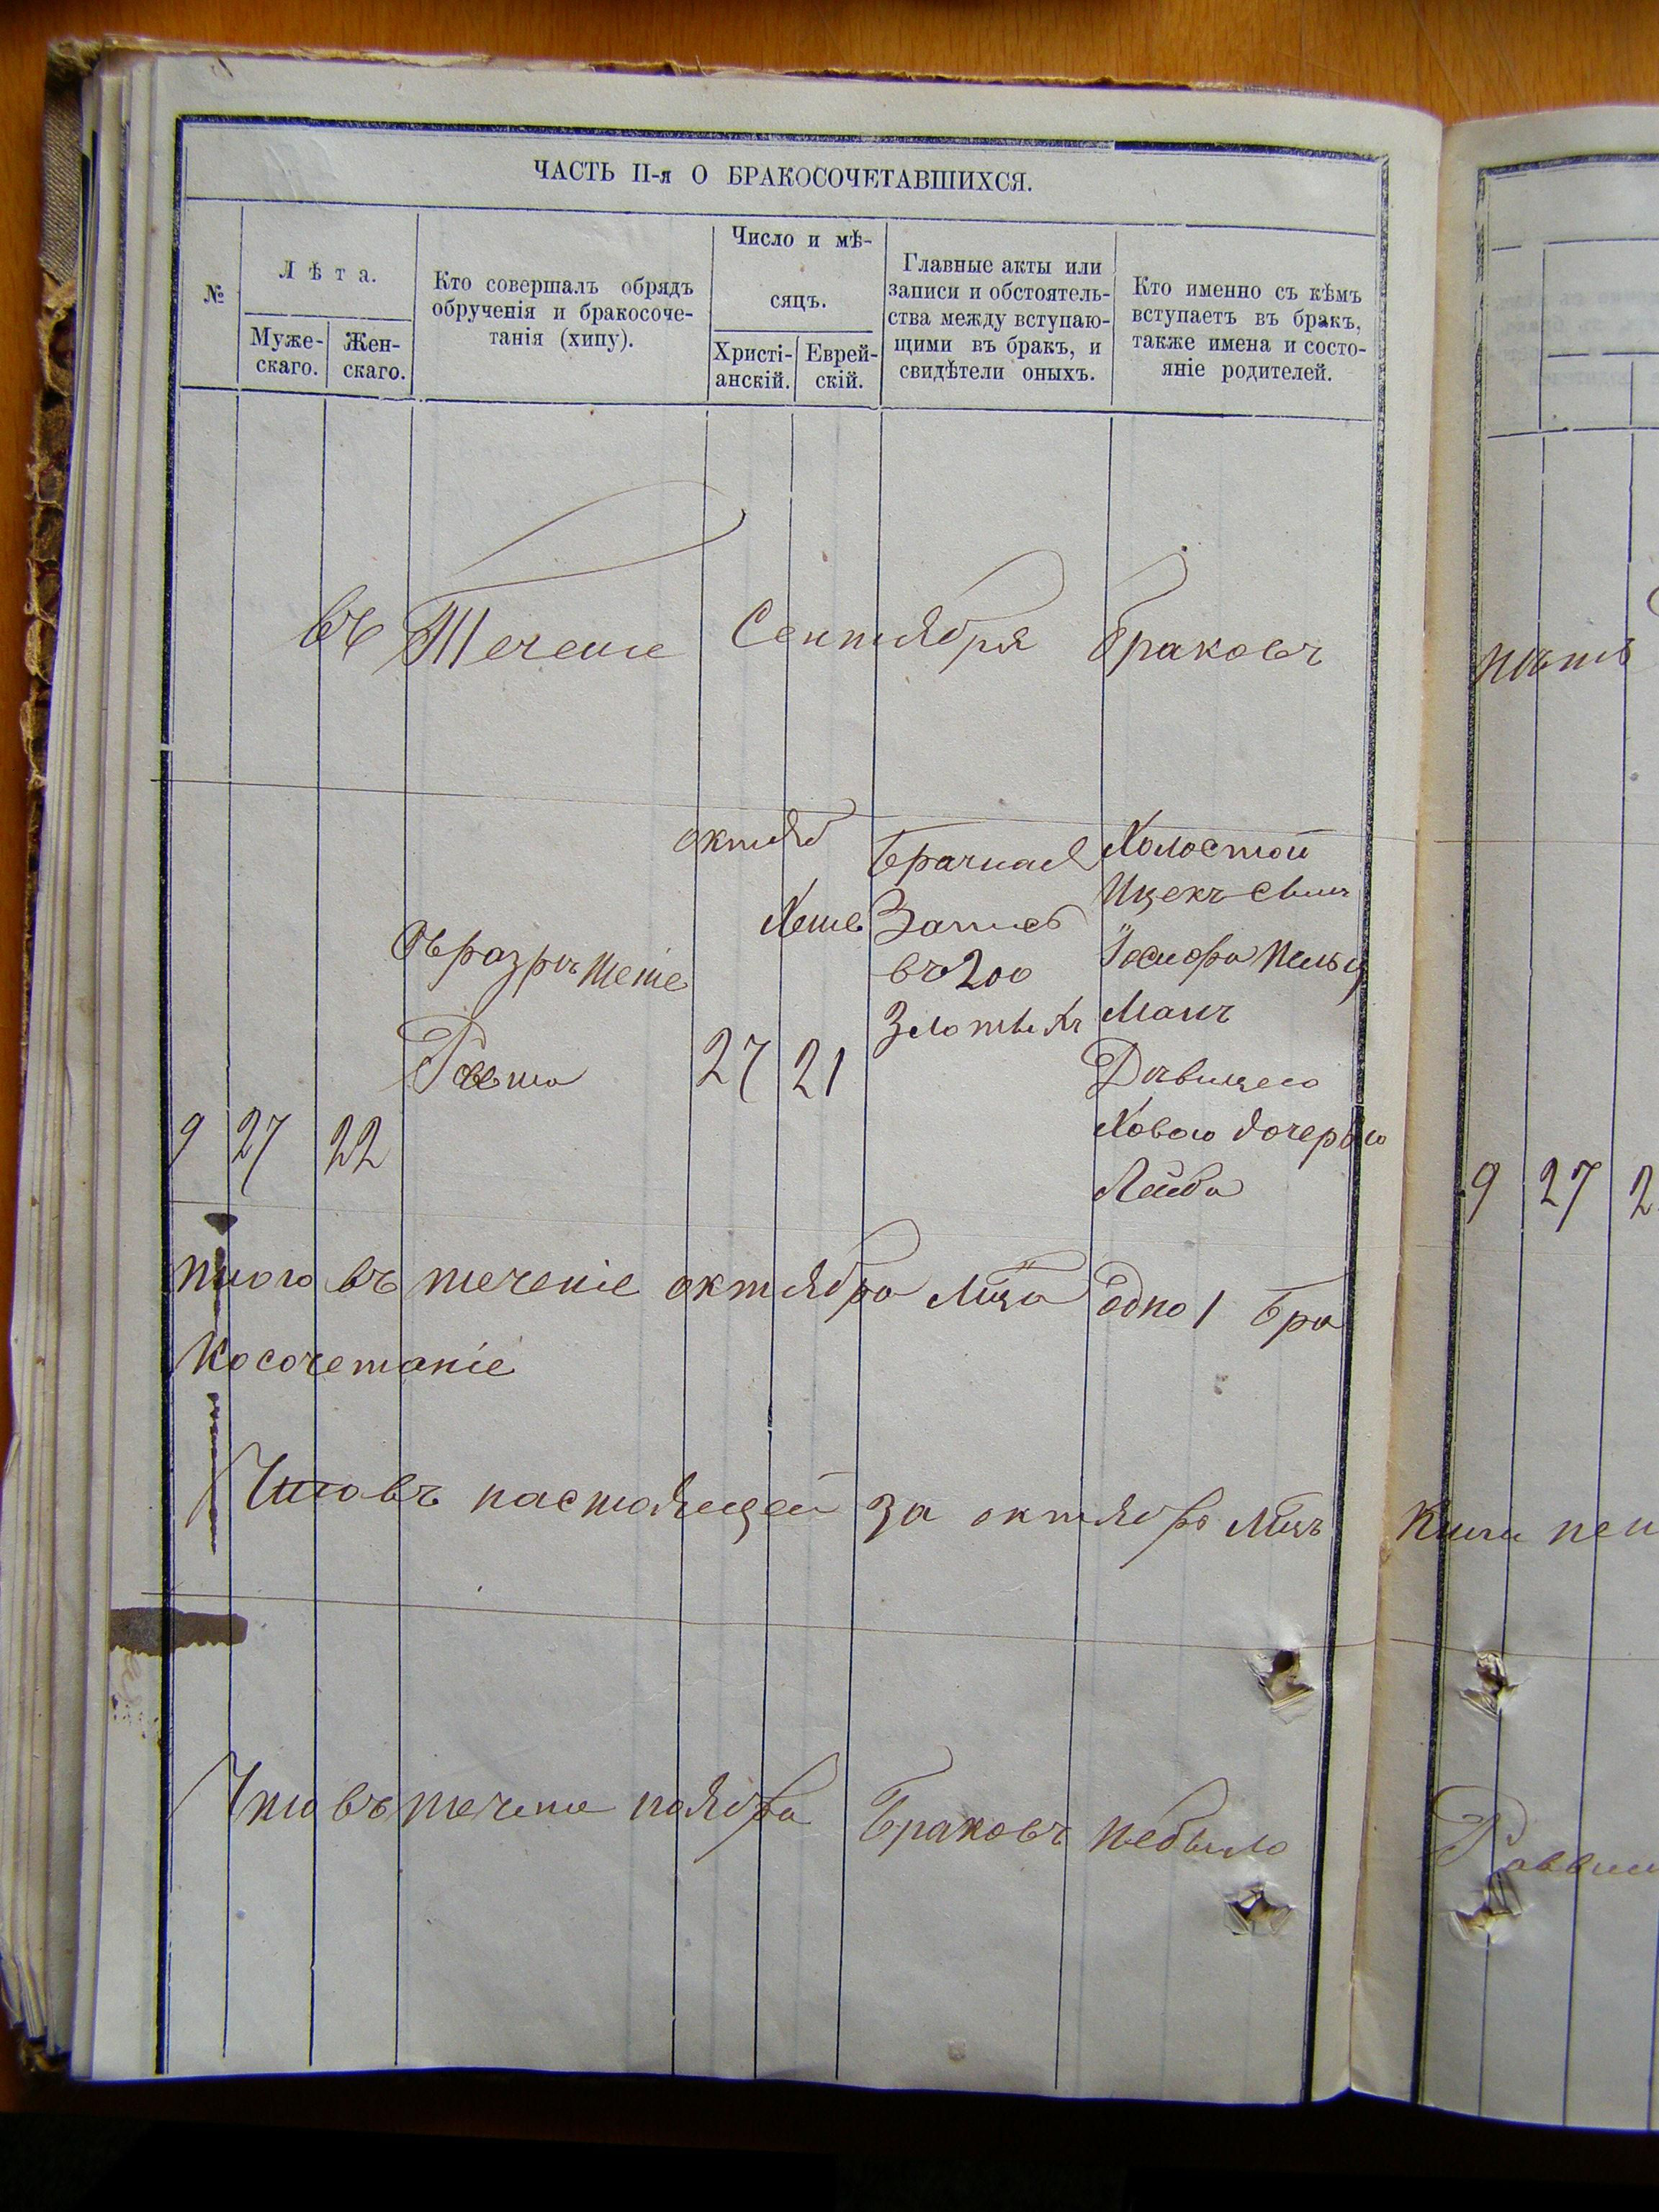 ЧАСТЬ II-я О БРАКОСОЧЕТАВШИХСЯ.
№
Лѣта.
Муже-
скаго.
Жен-
скаго.
Кто совершалъ обрядъ
обрученія и бракосоче-
танія (хипу).
Число и мѣ-
сяцъ.
Христі-
анскій.
Еврей-
скій.
Главные акты или
записи и обстоятель-
ства между вступаю-
щими въ бракъ, и
свидѣтели оныхъ.
Кто именно съ кѣмъ
вступаетъ въ бракъ,
также имена и состо-
яніе родителей.
въ Течение Сентября браковъ
нѣтъ
9
27
22
Съ разрѣшеніе
октяб
27
Хешв
21
Брачная
Запись
въ 200
Злотыхъ
Холостой
Ицекъ сынъ
Іосифа
Манъ
Давицею
Ховою дочерью
Лейба
9 27 2
итого въ теченіе октября мца одно 1 бра
косочетаніе
Что въ настоящей за октябрь мцъ
Что въ течение ноября Браковъ небыло